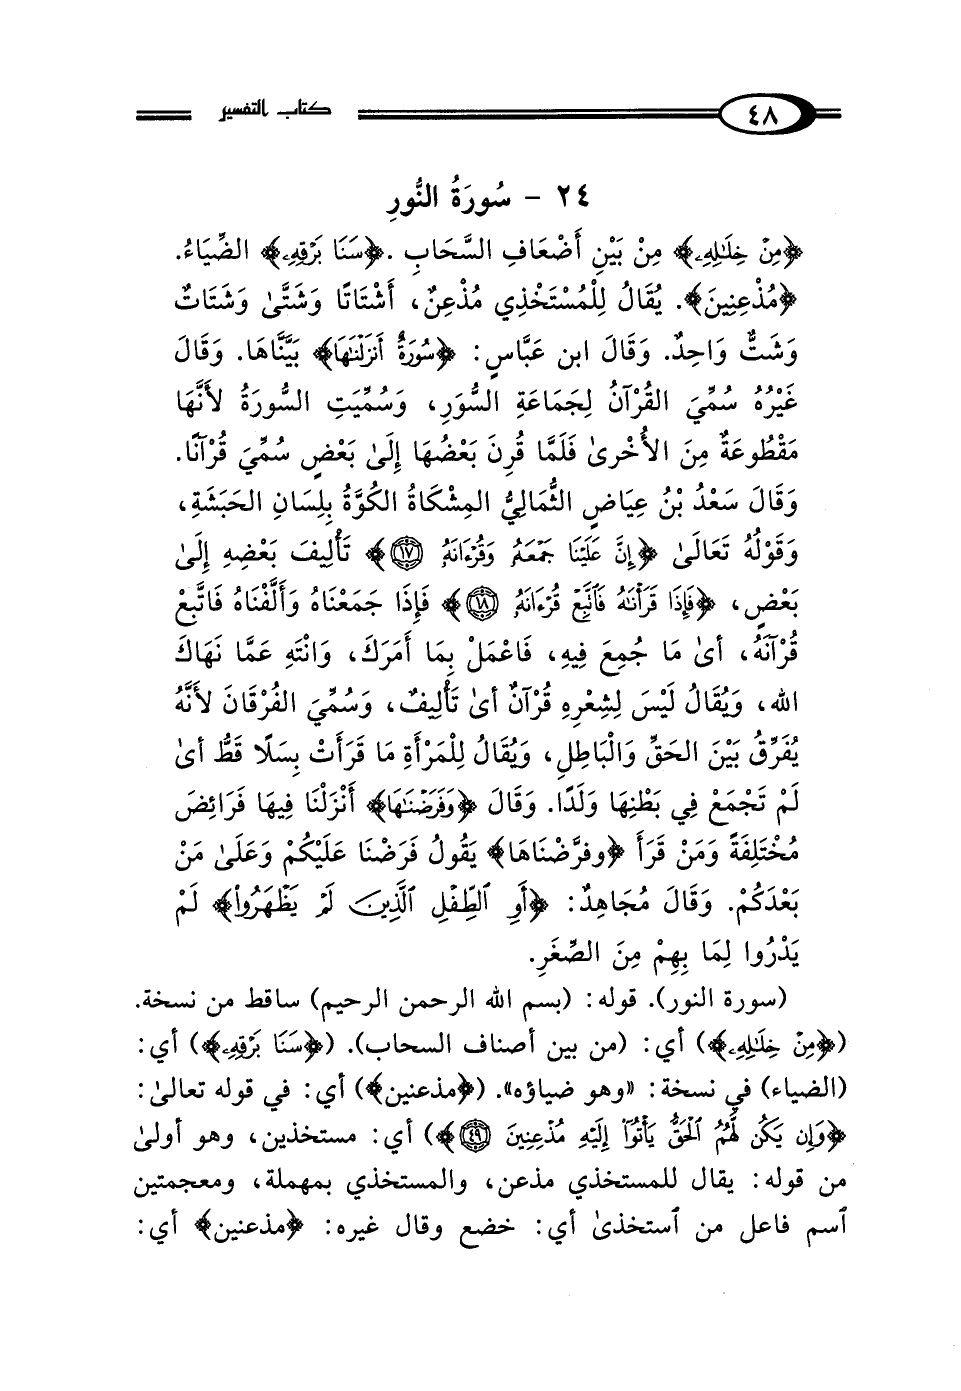 ٤٨ كتاب التفسير
٢٤ - سُورَةُ النُّورِ
﴿مِنْ خِلَٰلِهِۦ﴾ مِنْ بَيْنِ أَضْعَافِ السَّحَابِ. ﴿سَنَا بَرْقِهِۦ﴾ الضِّيَاءُ.
﴿مُذْعِنِينَ﴾. يُقَالُ لِلْمُسْتَخْذِي مُذْعِنٌ، أَشْتَاتًا وَشَتَّىٰ وَشَتَاتٌ
وَشَتٌّ وَاحِدٌ. وَقَالَ ابن عَبَّاسٍ: ﴿سُورَةٌ أَنزَلْنَٰهَا﴾ بَيَّنَّاهَا. وَقَالَ
غَيْرُهُ سُمِّيَ القُرْآنُ لِجَمَاعَةِ السُّوَرِ، وَسُمِّيَتِ السُّورَةُ لأَنَّهَا
مَقْطُوعَةٌ مِنَ الأُخْرىٰ فَلَمَّا قُرِنَ بَعْضُهَا إِلَىٰ بَعْضٍ سُمِّيَ قُرْآنًا.
وَقَالَ سَعْدُ بْنُ عِيَاضٍ الثُّمَالِيُّ المِشْكَاةُ الكُوَّةُ بِلِسَانِ الحَبَشَةِ،
وَقَوْلُهُ تَعَالَىٰ ﴿إِنَّ عَلَيْنَا جَمْعَهُۥ وَقُرْءَانَهُۥ ١٧﴾ تَأْلِيفَ بَعْضِهِ إِلَىٰ
بَعْضٍ، ﴿فَإِذَا قَرَأْنَٰهُ فَٱتَّبِعْ قُرْءَانَهُۥ ١٨﴾ فَإِذَا جَمَعْنَاهُ وَأَلَّفْنَاهُ فَاتَّبِعْ
قُرْآنَهُ، أىٰ مَا جُمِعَ فِيهِ، فَاعْمَلْ بِمَا أَمَرَكَ، وَانْتَهِ عَمَّا نَهَاكَ
الله، وَيُقَالُ لَيْسَ لِشِعْرِهِ قُرْآنٌ أىٰ تَأْلِيفٌ، وَسُمِّيَ الفُرْقَانَ لأَنَّهُ
يُفَرِّقُ بَيْنَ الحَقِّ وَالْبَاطِلِ، وَيُقَالُ لِلْمَرْأَةِ مَا قَرَأَتْ بِسَلًا قَطُّ أىٰ
لَمْ تَجْمَعْ فِي بَطْنِهَا وَلَدًا. وَقَالَ ﴿وَفَرَضْنَٰهَا﴾ أَنْزَلْنَا فِيهَا فَرَائِضَ
مُخْتَلِفَةً وَمَنْ قَرَأَ ﴿وفرَّضْنَاهَا﴾ يَقُولُ فَرَضْنَا عَلَيْكُمْ وَعَلَىٰ مَنْ
بَعْدَكُمْ. وَقَالَ مُجَاهِدٌ: ﴿أَوِ ٱلطِّفْلِ ٱلَّذِينَ لَمْ يَظْهَرُوا۟﴾ لَمْ
يَدْرُوا لِمَا بِهِمْ مِنَ الصِّغَرِ.
(سورة النور). قوله: (بسم الله الرحمن الرحيم) ساقط من نسخة.
(﴿مِنْ خِلَٰلِهِۦ﴾) أي: (من بين أصناف السحاب). (﴿سَنَا بَرْقِهِۦ﴾) أي:
(الضياء) في نسخة: «وهو ضياؤه». (﴿مذعنين﴾) أي: في قوله تعالىٰ:
﴿وَإِن يَكُن لَّهُمُ ٱلْحَقُّ يَأْتُوٓا۟ إِلَيْهِ مُذْعِنِينَ ٤٩﴾) أي: مستخذين، وهو أولىٰ
من قوله: يقال للمستخذي مذعن، والمستخذي بمهملة، ومعجمتين
ٱسم فاعل من ٱستخذىٰ أي: خضع وقال غيره: ﴿مذعنين﴾ أي: